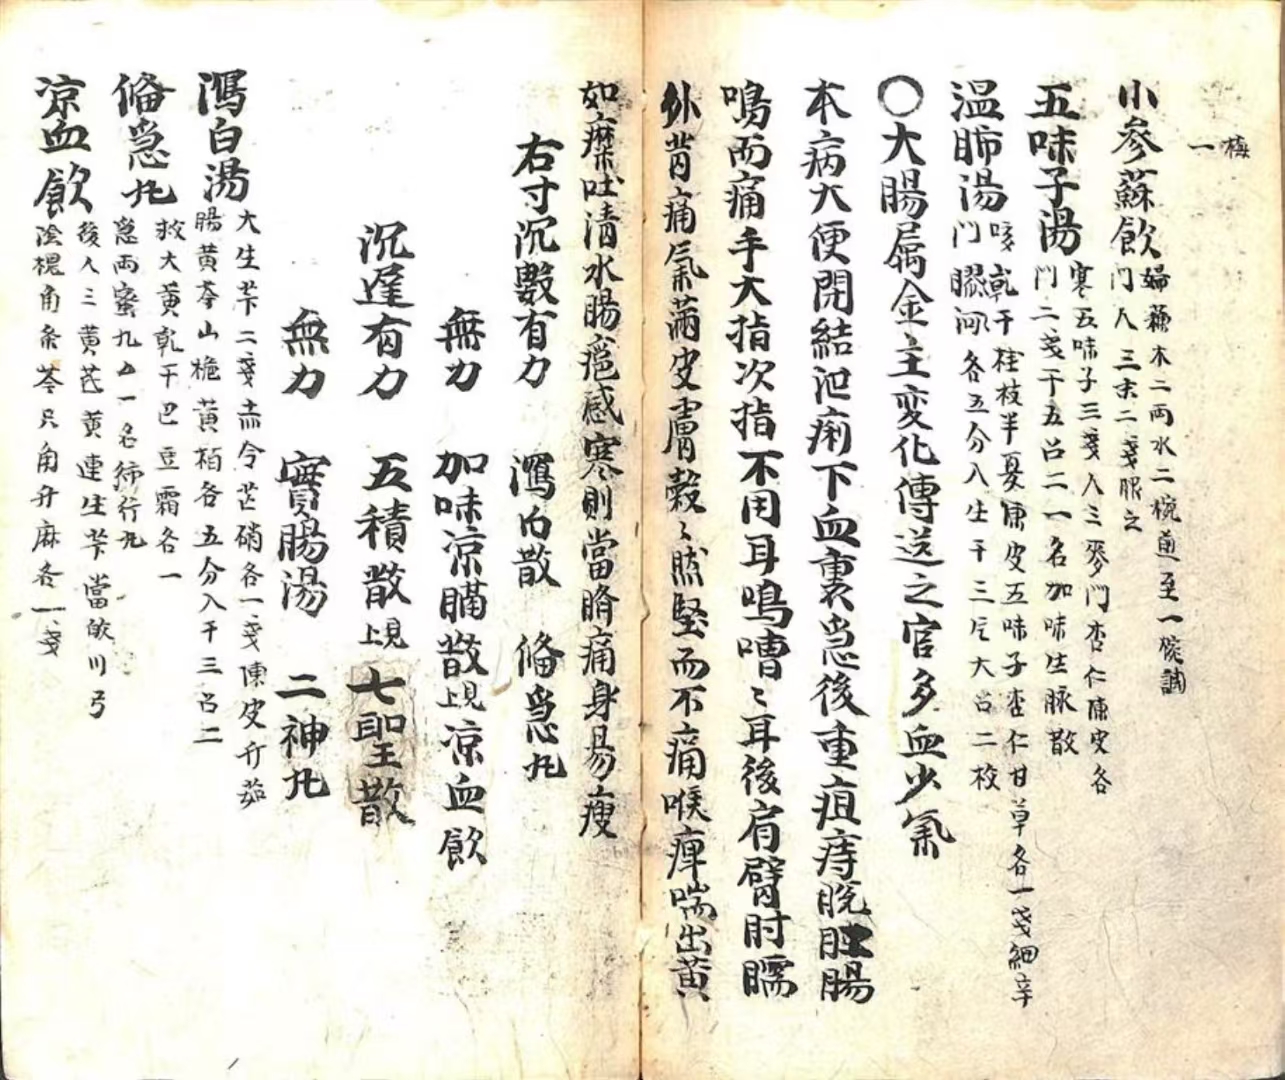 梅一
小參蘇飲 婦蘇木二両水二椀煎至一椀調
門人三末二戔服之
五味子湯 寒五味子三戔人三麥門杏仁陳皮各
門二戔干五召二一名加味生脉散
温肺湯 咳乾干桂枝半夏陳皮五味子杏仁甘草各一戔細辛
門 各五分入生干三片大召二枚
〇大腸属金主変化傳送之官多血少氣
本病大便閉結泄痢下血裏急後重疽痔脱肛腸
鳴而痛手大指次指不用耳鳴嘈〻耳後肩臂肘臑
外背痛氣滿皮膚殼〻然堅而不痛喉痺喘出黄
如糜吐清水腸疱感寒則當臍痛身易瘦
右寸沉數有力 瀉白散 俻急丸
無力 加味凉膈散上見凉血飲
沉遲有力 五積散上見七聖散
無力 實腸湯 二神丸
瀉白湯 大生芐二戔赤令芒硝各一戔陳皮竹茹
腸黄芩山梔黄栢各五分入干三召二
俻急丸 救大黄乾干巴豆霜各一
急両蜜丸 一名 行丸
凉血飲 後人三黄芪黄連生芐當皈川弓
陰槐角条芩只角升麻各一戔